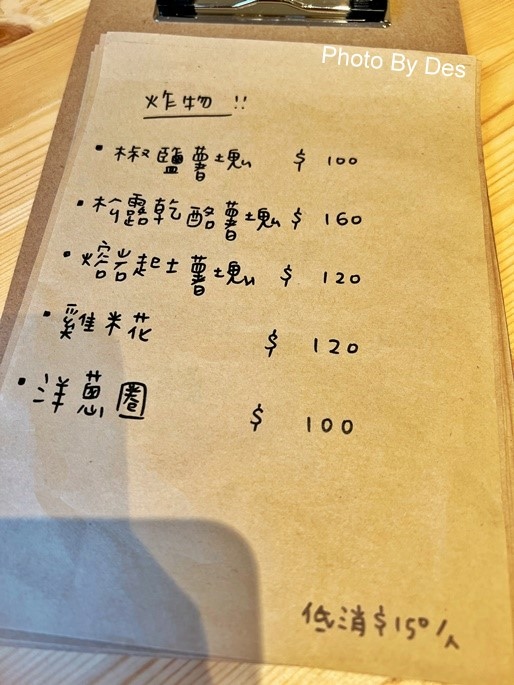 Photo By Des
炸物 !!
• 椒鹽薯塊 $ 100
• 松露乾酪薯塊 $ 160
• 熔岩起士薯塊 $ 120
• 雞米花 $ 120
• 洋蔥圈 $ 100
低消 $150/人